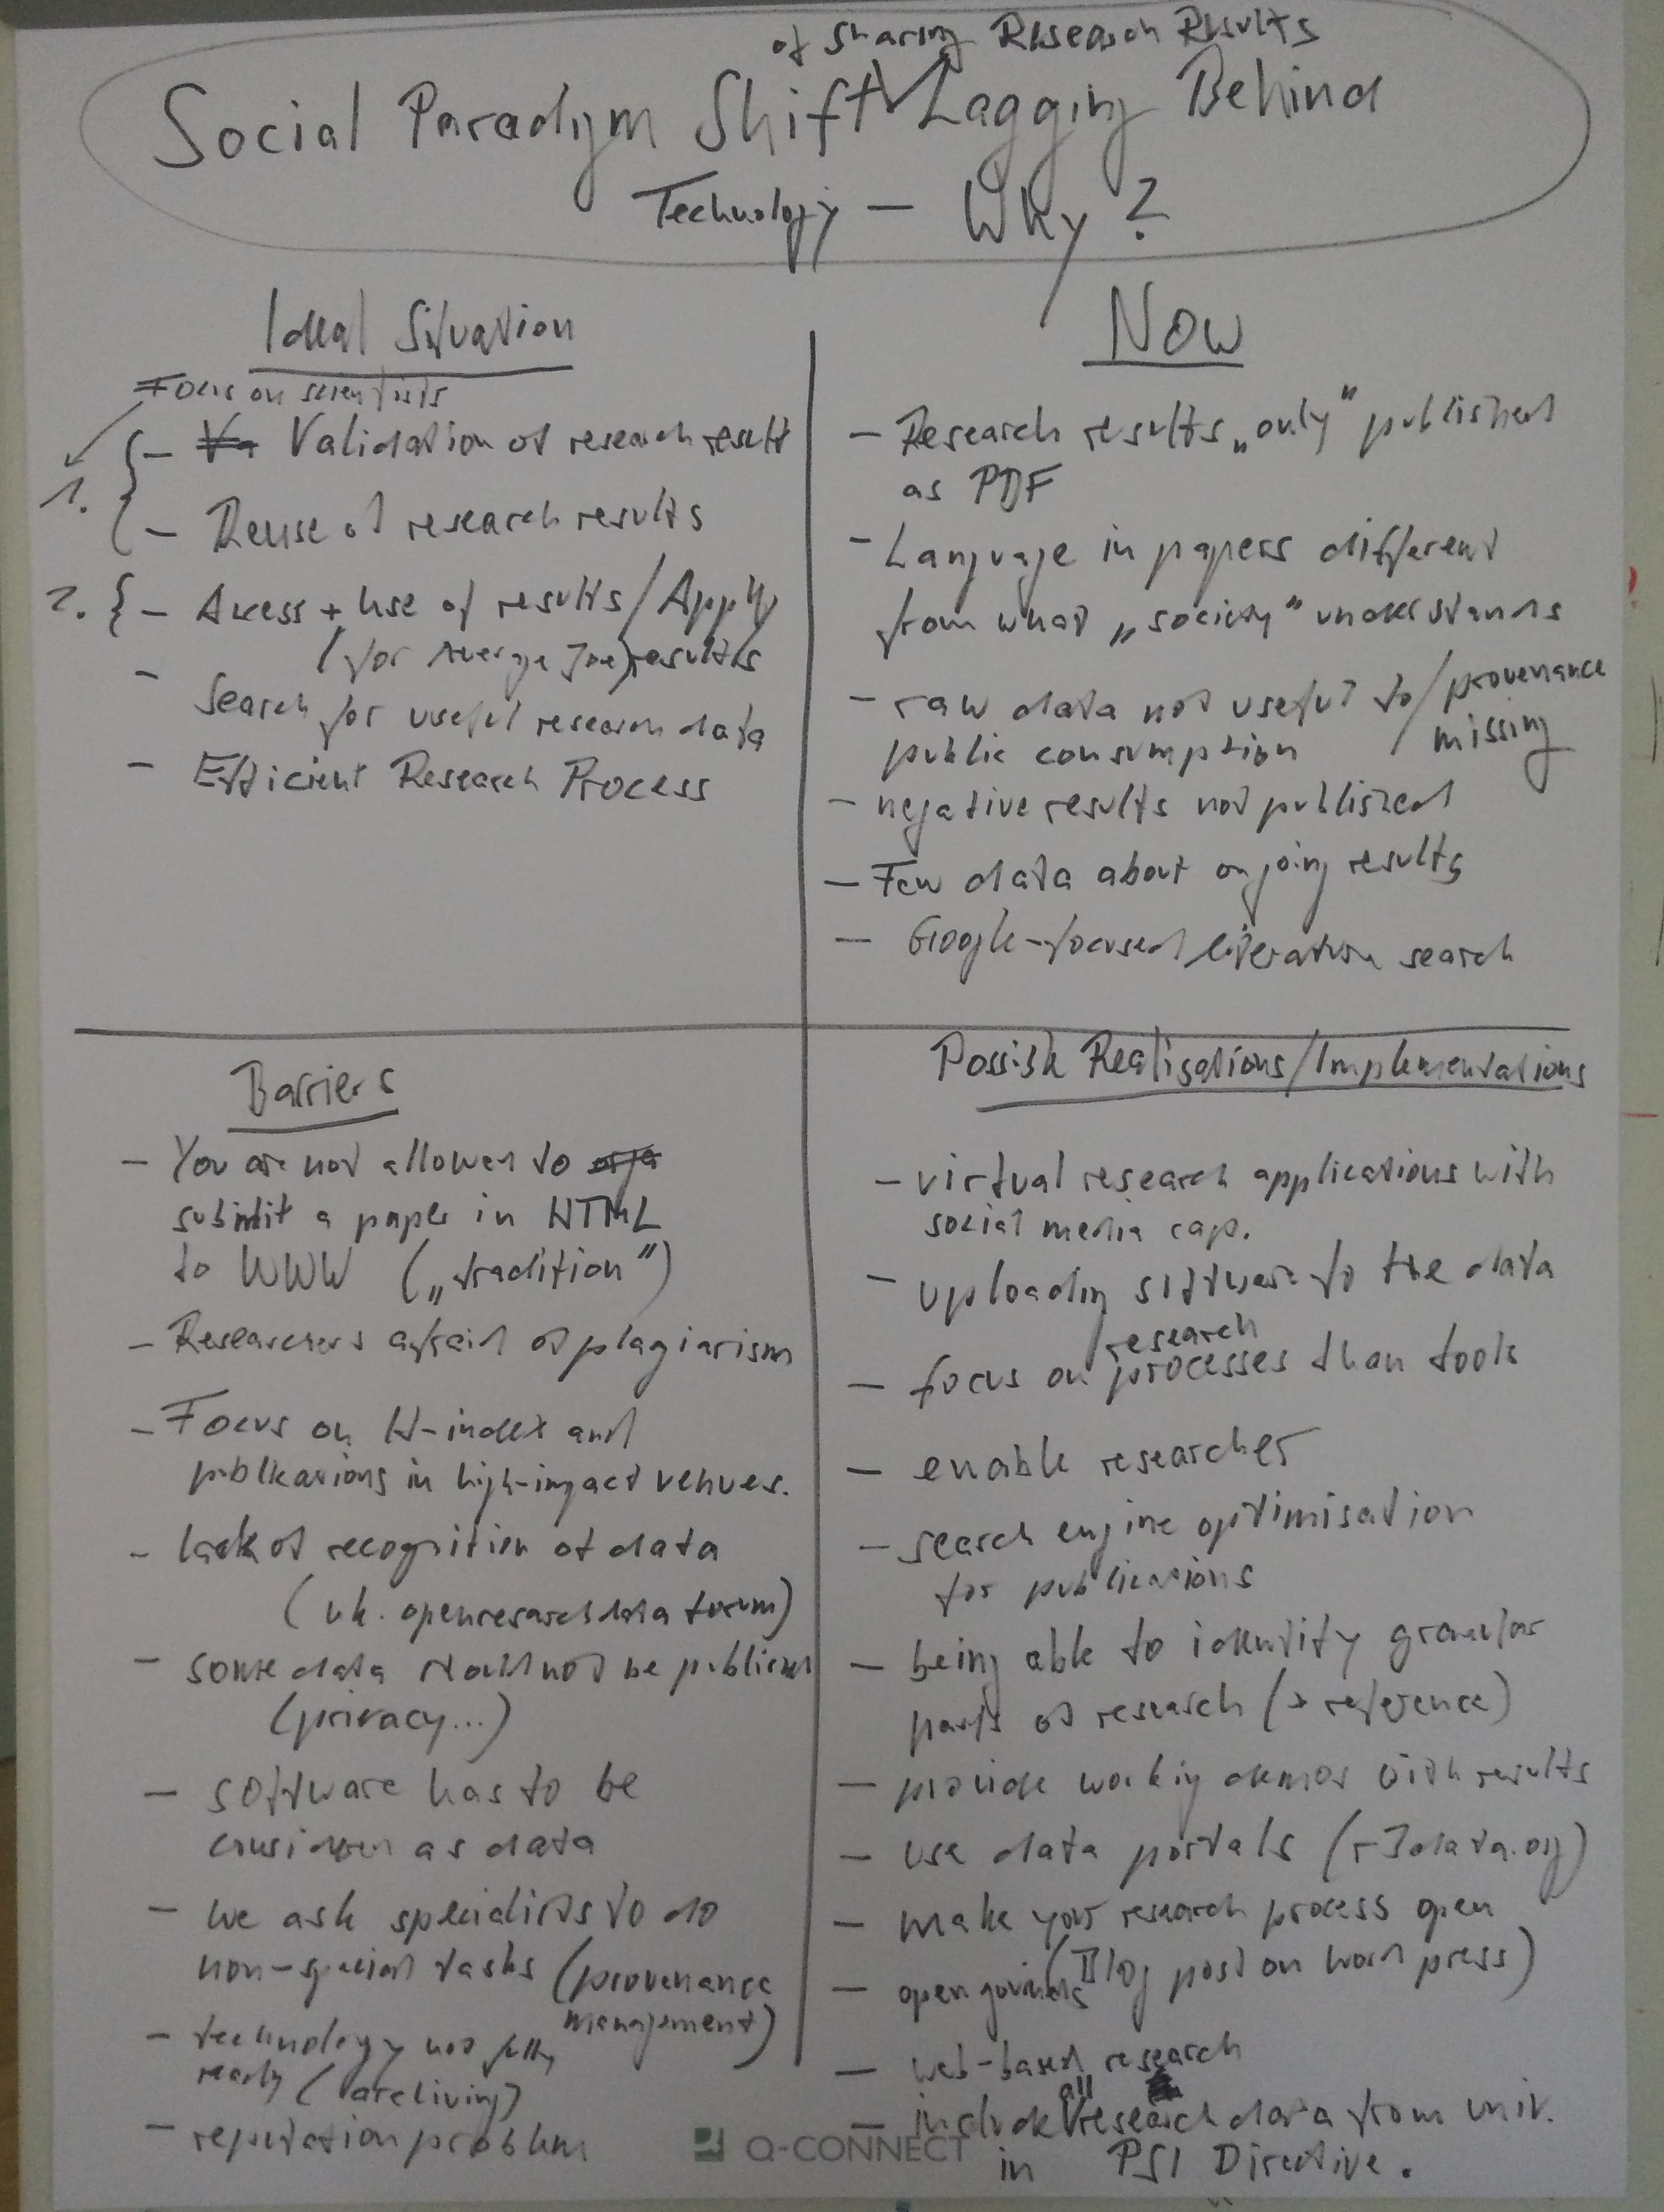 of Sharing Research Results
Social Paradigm Shift Lagging Behind
Technology — Why?
Ideal Situation
Focus on scientists
1.
- Validation of research result
- Reuse of research results
2.
- Access + Use of results / Apply
(for Average Joe) results
- Search for useful research data
- Efficient Research Process
Now
- Research results „only" published
as PDF
- Language in papers different
from what „society" understands
- raw data not useful to / provenance
public consumption missing
- negative results not published
- Few data about ongoing results
- Google-focused literature search
Barriers
- You are not allowed to
submit a paper in HTML
to WWW („tradition")
- Researchers afraid of plagiarism
- Focus on H-index and
publications in high-impact venues.
- lack of recognition of data
(uk. openresearchdata forum)
- some data should not be published
(privacy...)
- software has to be
considered as data
- we ask specialists to do
non-special tasks (provenance
management)
- technology not fully
ready (archiving)
- reputation problem
Possible Realisations/Implementations
- virtual research applications with
social media cap.
- uploading software to the data
research
- focus on processes than tools
- enable researcher
- search engine optimisation
for publications
- being able to identify granular
parts of research (→ reference)
- provide working demos with results
- use data portals (r3data.org)
- make your research process open
(Blog post on wordpress)
- open
- web-based research
all
- include research data from univ.
in PSI Directive.
Q-CONNECT